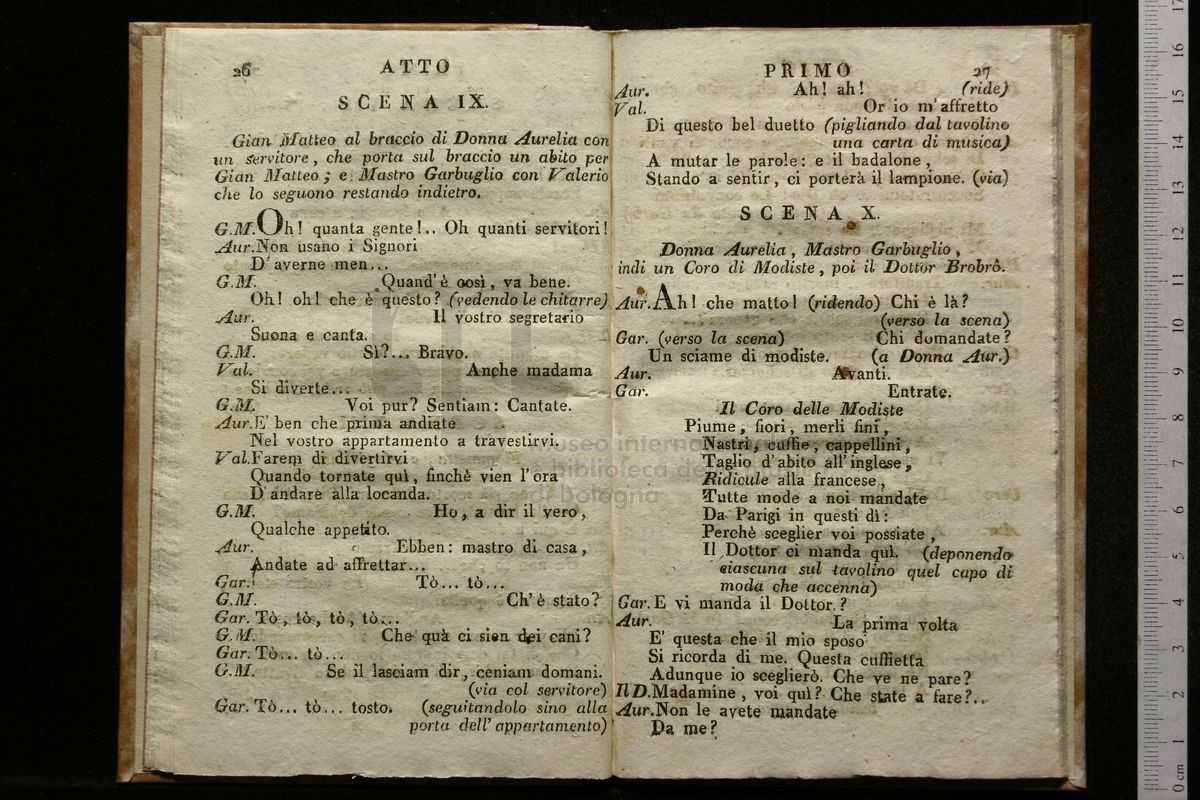 26
ATTO
SCENA IX.
Gian Matteo al braccio di Donna Aurelia con
un servitore, che porta sul braccio un abito per
Gian Matteo; e Mastro Garbuglio con Valerio
che lo seguono restando indietro.
G.M. Oh! quanta gente!.. Oh quanti servitori!
Aur. Non usano i Signori
D'averne men...
G.M. Quand'è così, va bene.
Oh! oh! che è questo? (vedendo le chitarre)
Aur. Il vostro segretario
Suona e canta.
G.M. Sì?... Bravo.
Val. Anche madama
Si diverte...
G.M. Voi pur? Sentiam: Cantate.
Aur. E' ben che prima andiate
Nel vostro appartamento a travestirvi.
Val. Farem di divertirvi
Quando tornate quì, finchè vien l'ora
D'andare alla locanda.
G.M. Ho, a dir il vero,
Qualche appetito.
Aur. Ebben: mastro di casa,
Andate ad affrettar...
Gar. Tò... tò...
G.M. Ch'è stato?
Gar. Tò, tò, tò, tò...
G.M. Che quà ci sien dei cani?
Gar. Tò... tò...
G.M. Se il lasciam dir, ceniam domani.
(via col servitore)
Gar. Tò... tò... tosto. (seguitandolo sino alla
porta dell'appartamento)
PRIMO
27
Aur. Ah! ah! (ride)
Val. Or io m'affretto
Di questo bel duetto (pigliando dal tavolino
una carta di musica)
A mutar le parole: e il badalone,
Stando a sentir, ci porterà il lampione. (via)
SCENA X.
Donna Aurelia, Mastro Garbuglio,
indi un Coro di Modiste, poi il Dottor Brobrò.
Aur. Ah! che matto! (ridendo) Chi è là?
(verso la scena)
Gar. (verso la scena) Chi domandate?
Un sciame di modiste. (a Donna Aur.)
Aur. Avanti.
Gar. Entrate.
Il Coro delle Modiste
Piume, fiori, merli fini,
Nastri, cuffie, cappellini,
Taglio d'abito all'inglese,
Ridicule alla francese,
Tutte mode a noi mandate
Da Parigi in questi dì:
Perchè sceglier voi possiate,
Il Dottor ci manda quì. (deponendo
ciascuna sul tavolino quel capo di
moda che accenna)
Gar. E vi manda il Dottor?
Aur. La prima volta
E' questa che il mio sposo
Si ricorda di me. Questa cuffietta
Adunque io sceglierò. Che ve ne pare?
Il D. Madamine, voi quì? Che state a fare?...
Aur. Non le avete mandate
Da me?
museo interna
biblioteca de
di bologna
0 cm 1 2 3 4 5 6 7 8 9 10 11 12 13 14 15 16 17